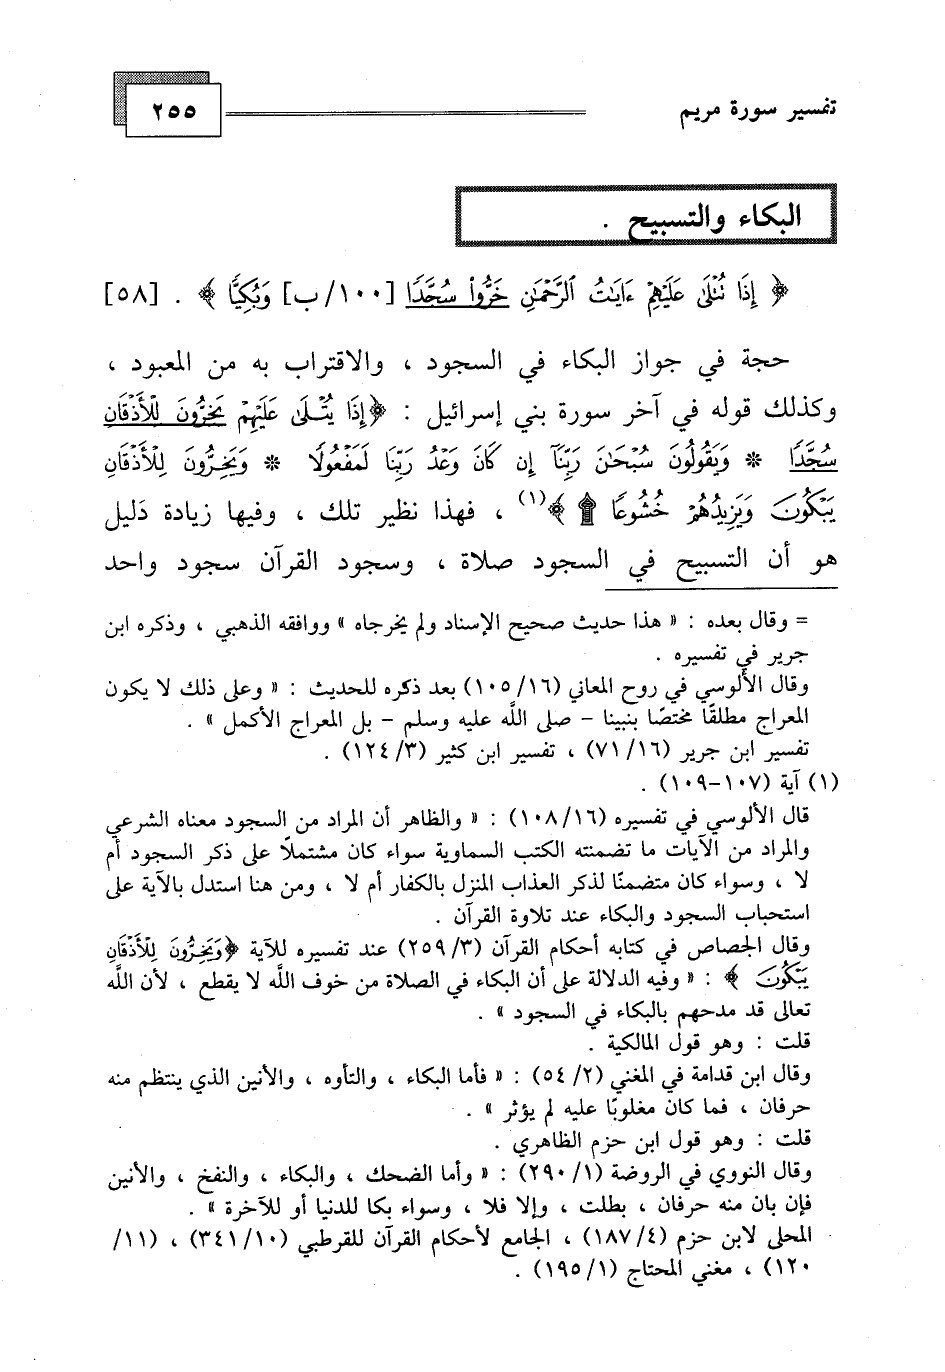 تفسير سورة مريم ٢٥٥
البكاء والتسبيح .
﴿ إِذَا تُتْلَىٰ عَلَيْهِمْ ءَايَٰتُ ٱلرَّحْمَٰنِ خَرُّوا۟ سُجَّدًا [١٠٠/ب] وَبُكِيًّا ﴾ . [٥٨]
حجة في جواز البكاء في السجود ، والاقتراب به من المعبود ،
وكذلك قوله في آخر سورة بني إسرائيل : ﴿إِذَا يُتْلَىٰ عَلَيْهِمْ يَخِرُّونَ لِلْأَذْقَانِ
سُجَّدًا * وَيَقُولُونَ سُبْحَٰنَ رَبِّنَآ إِن كَانَ وَعْدُ رَبِّنَا لَمَفْعُولًا * وَيَخِرُّونَ لِلْأَذْقَانِ
يَبْكُونَ وَيَزِيدُهُمْ خُشُوعًا ۩ ﴾(١) ، فهذا نظير تلك ، وفيها زيادة دَليل
هو أن التسبيح في السجود صلاة ، وسجود القرآن سجود واحد
= وقال بعده : « هذا حديث صحيح الإسناد ولم يخرجاه » ووافقه الذهبي ، وذكره ابن
جرير في تفسيره .
وقال الألوسي في روح المعاني (١٦/ ١٠٥) بعد ذكره للحديث : « وعلى ذلك لا يكون
المعراج مطلقًا مختصًا بنبينا – صلى اللَّه عليه وسلم – بل المعراج الأكمل » .
تفسير ابن جرير (١٦/ ٧١) ، تفسير ابن كثير (٣/ ١٢٤) .
(١) آية (١٠٧–١٠٩) .
قال الألوسي في تفسيره (١٦/ ١٠٨) : « والظاهر أن المراد من السجود معناه الشرعي
والمراد من الآيات ما تضمنته الكتب السماوية سواء كان مشتملًا على ذكر السجود أم
لا ، وسواء كان متضمنًا لذكر العذاب المنزل بالكفار أم لا ، ومن هنا استدل بالآية على
استحباب السجود والبكاء عند تلاوة القرآن .
وقال الجصاص في كتابه أحكام القرآن (٣/ ٢٥٩) عند تفسيره للآية ﴿وَيَخِرُّونَ لِلْأَذْقَانِ
يَبْكُونَ ﴾ : « وفيه الدلالة على أن البكاء في الصلاة من خوف اللَّه لا يقطع ، لأن اللَّه
تعالى قد مدحهم بالبكاء في السجود » .
قلت : وهو قول المالكية .
وقال ابن قدامة في المغني (٢/ ٥٤) : « فأما البكاء ، والتأوه ، والأنين الذي ينتظم منه
حرفان ، فما كان مغلوبًا عليه لم يؤثر » .
قلت : وهو قول ابن حزم الظاهري .
وقال النووي في الروضة (١/ ٢٩٠) : « وأما الضحك ، والبكاء ، والنفخ ، والأنين
فإن بان منه حرفان ، بطلت ، وإلا فلا ، وسواء بكا للدنيا أو للآخرة » .
المحلى لابن حزم (٤/ ١٨٧) ، الجامع لأحكام القرآن للقرطبي (١٠/ ٣٤١) ، (١١/
١٢٠) ، مغني المحتاج (١/ ١٩٥) .